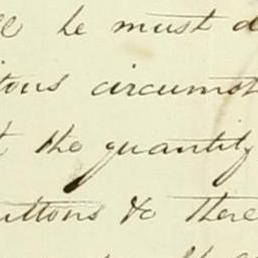 he must
circumst
the quantity
uttons &c There